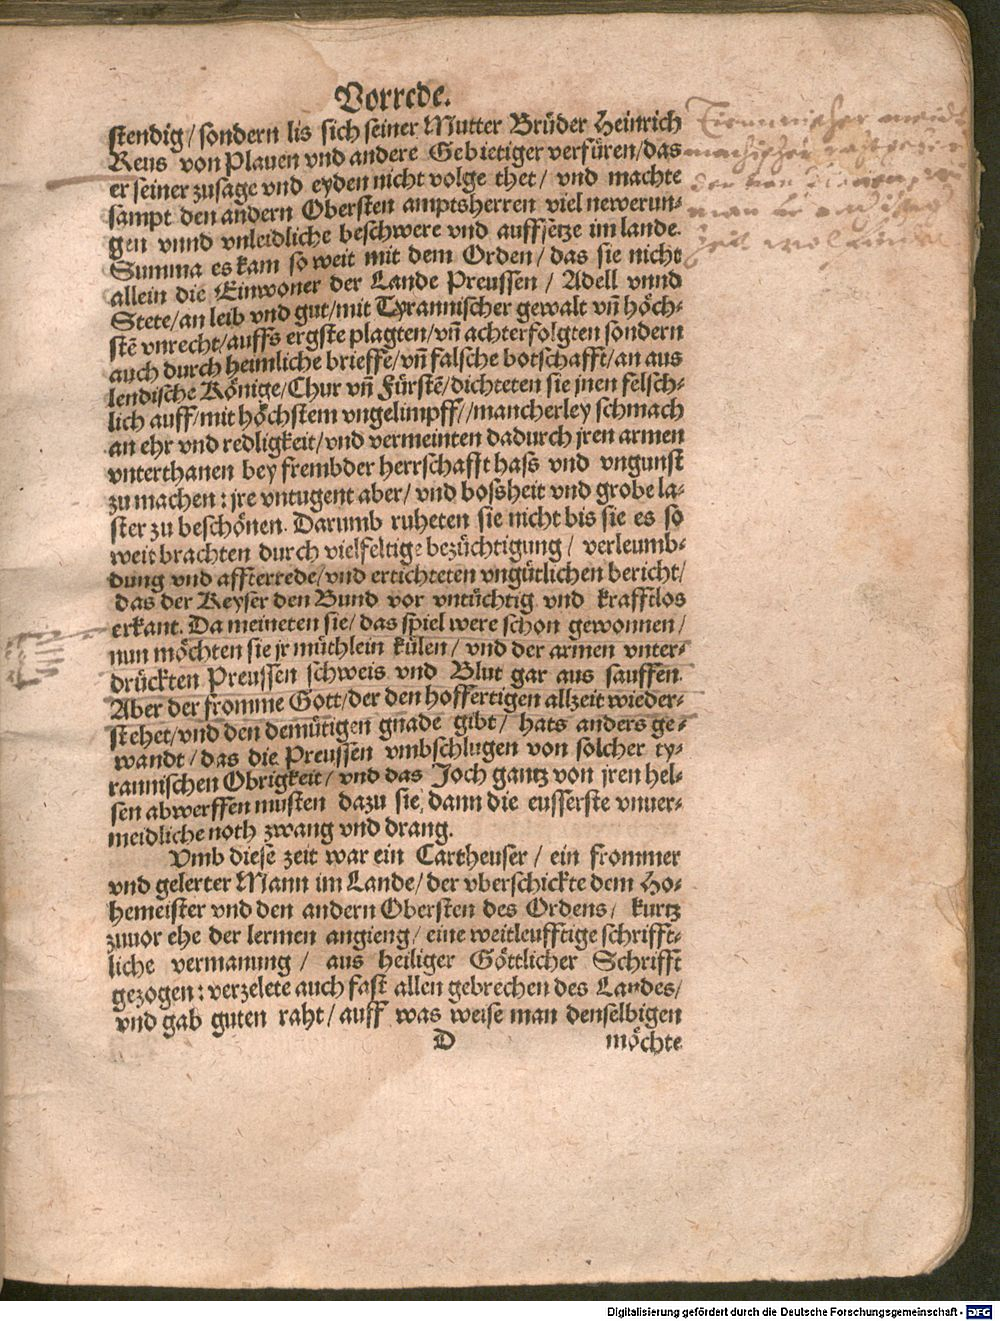 Vorrede.
stendig/sondern lis sich seiner Mutter Brůder Heinrich
Reus von Plauen vnd andere Gebietiger verfüren/das
er seiner zusage vnd eyden nicht volge thet/ vnd machte
sampt den andern Obersten amptsherren viel newerun-
gen vnnd vnleidliche beschwere vnd auffsetze im lande.
Summa es kam so weit mit dem Orden/das sie nicht
allein die Einwoner der Lande Preussen/ Adell vnnd
Stete/an leib vnd gut/mit Tyrannischer gewalt vñ hőch-
stē vnrecht/auffs ergste plagten/vñ achterfolgten sondern
auch durch heimliche brieffe/vñ falsche botschafft/an aus
lendische Kőnige/Chur vñ Fürstē/dichteten sie jnen felsch-
lich auff/mit hőchstem vngelimpff//mancherley schmach
an ehr vnd redligkeit/vnd vermeinten dadurch jren armen
vnterthanen bey frembder herrschafft hass vnd vngunst
zu machen: jre vntugent aber/ vnd bossheit vnd grobe la-
ster zu beschőnen. Darumb ruheten sie nicht bis sie es so
weit brachten durch vielfeltige bezüchtigung/ verleumb-
dung vnd affterrede/vnd ertichteten vngütlichen bericht/
das der Keyser den Bund vor vntüchtig vnd krafftlos
erkant. Da meineten sie/ das spiel were schon gewonnen/
nun mőchten sie jr müthlein külen/ vnd der armen vnter-
drückten Preussen schweis vnd Blut gar aus sauffen.
Aber der fromme Gott/der den hoffertigen allzeit wieder-
stehet/vnd den demütigen gnade gibt/ hats anders ge-
wandt/das die Preussen vmbschlugen von solcher ty-
rannischen Obrigkeit/ vnd das Joch gantz von jren hel-
sen abwerffen musten dazu sie, dann die eusserste vnuer-
meidliche noth zwang vnd drang.
Vmb diese zeit war ein Cartheuser/ ein frommer
vnd gelerter Mann im Lande/der vberschickte dem Ho-
hemeister vnd den andern Obersten des Ordens/ kurtz
zuuor ehe der lermen angieng/ eine weitleufftige schrifft-
liche vermanung/ aus heiliger Gőttlicher Schrifft
gezogen: verzelete auch fast allen gebrechen des Landes/
vnd gab guten raht/ auff was weise man denselbigen
D mőchte
Digitalisierung gefördert durch die Deutsche Forschungsgemeinschaft - DFG